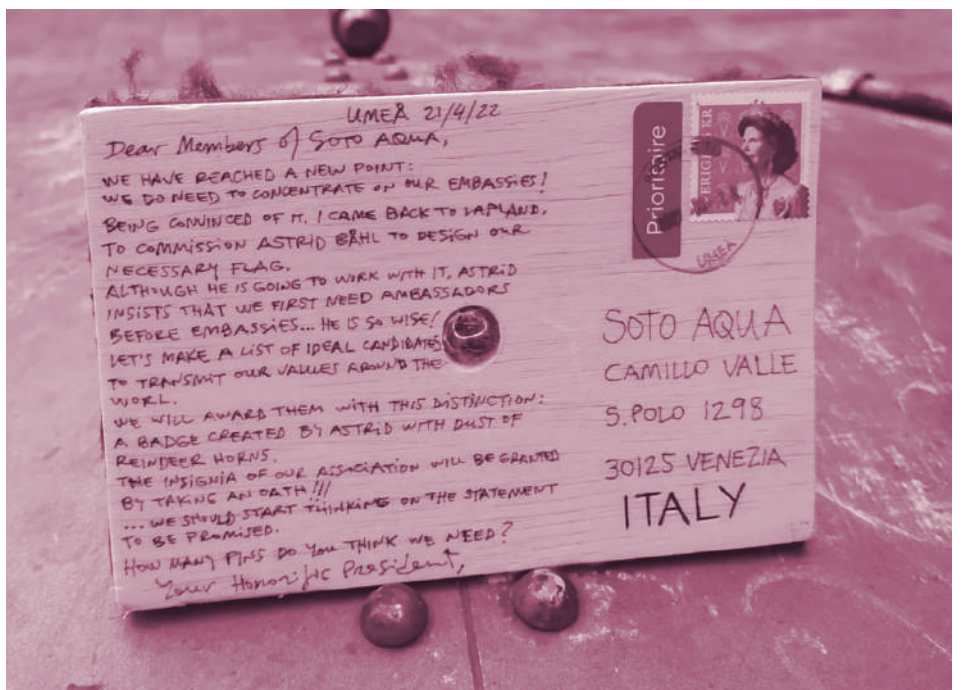 UMEÅ 21/4/22
Dear Members of SOTO AQUA,
WE HAVE REACHED A NEW POINT:
WE DO NEED TO CONCENTRATE ON OUR EMBASSIES!
BEING CONVINCED OF IT, I CAME BACK TO LAPLAND,
TO COMMISSION ASTRID BÅHL TO DESIGN OUR
NECESSARY FLAG.
ALTHOUGH HE IS GOING TO WORK WITH IT, ASTRID
INSISTS THAT WE FIRST NEED AMBASSADORS
BEFORE EMBASSIES... HE IS SO WISE!
LET'S MAKE A LIST OF IDEAL CANDIDATES
TO TRANSMIT OUR VALUES AROUND THE
WORL.
WE WILL AWARD THEM WITH THIS DISTINCTION:
A BADGE CREATED BY ASTRID WITH DUST OF
REINDEER HORNS.
THE INSIGNIA OF OUR ASSOCIATION WILL BE GRANTED
BY TAKING AN OATH!!!
... WE SHOULD START THINKING ON THE STATEMENT
TO BE PROMISED.
HOW MANY PINS DO YOU THINK WE NEED?
Your Honorific President,
Prioritaire
SVERIGE
KR
UMEÅ
SOTO AQUA
CAMILLO VALLE
S. POLO 1298
30125 VENEZIA
ITALY